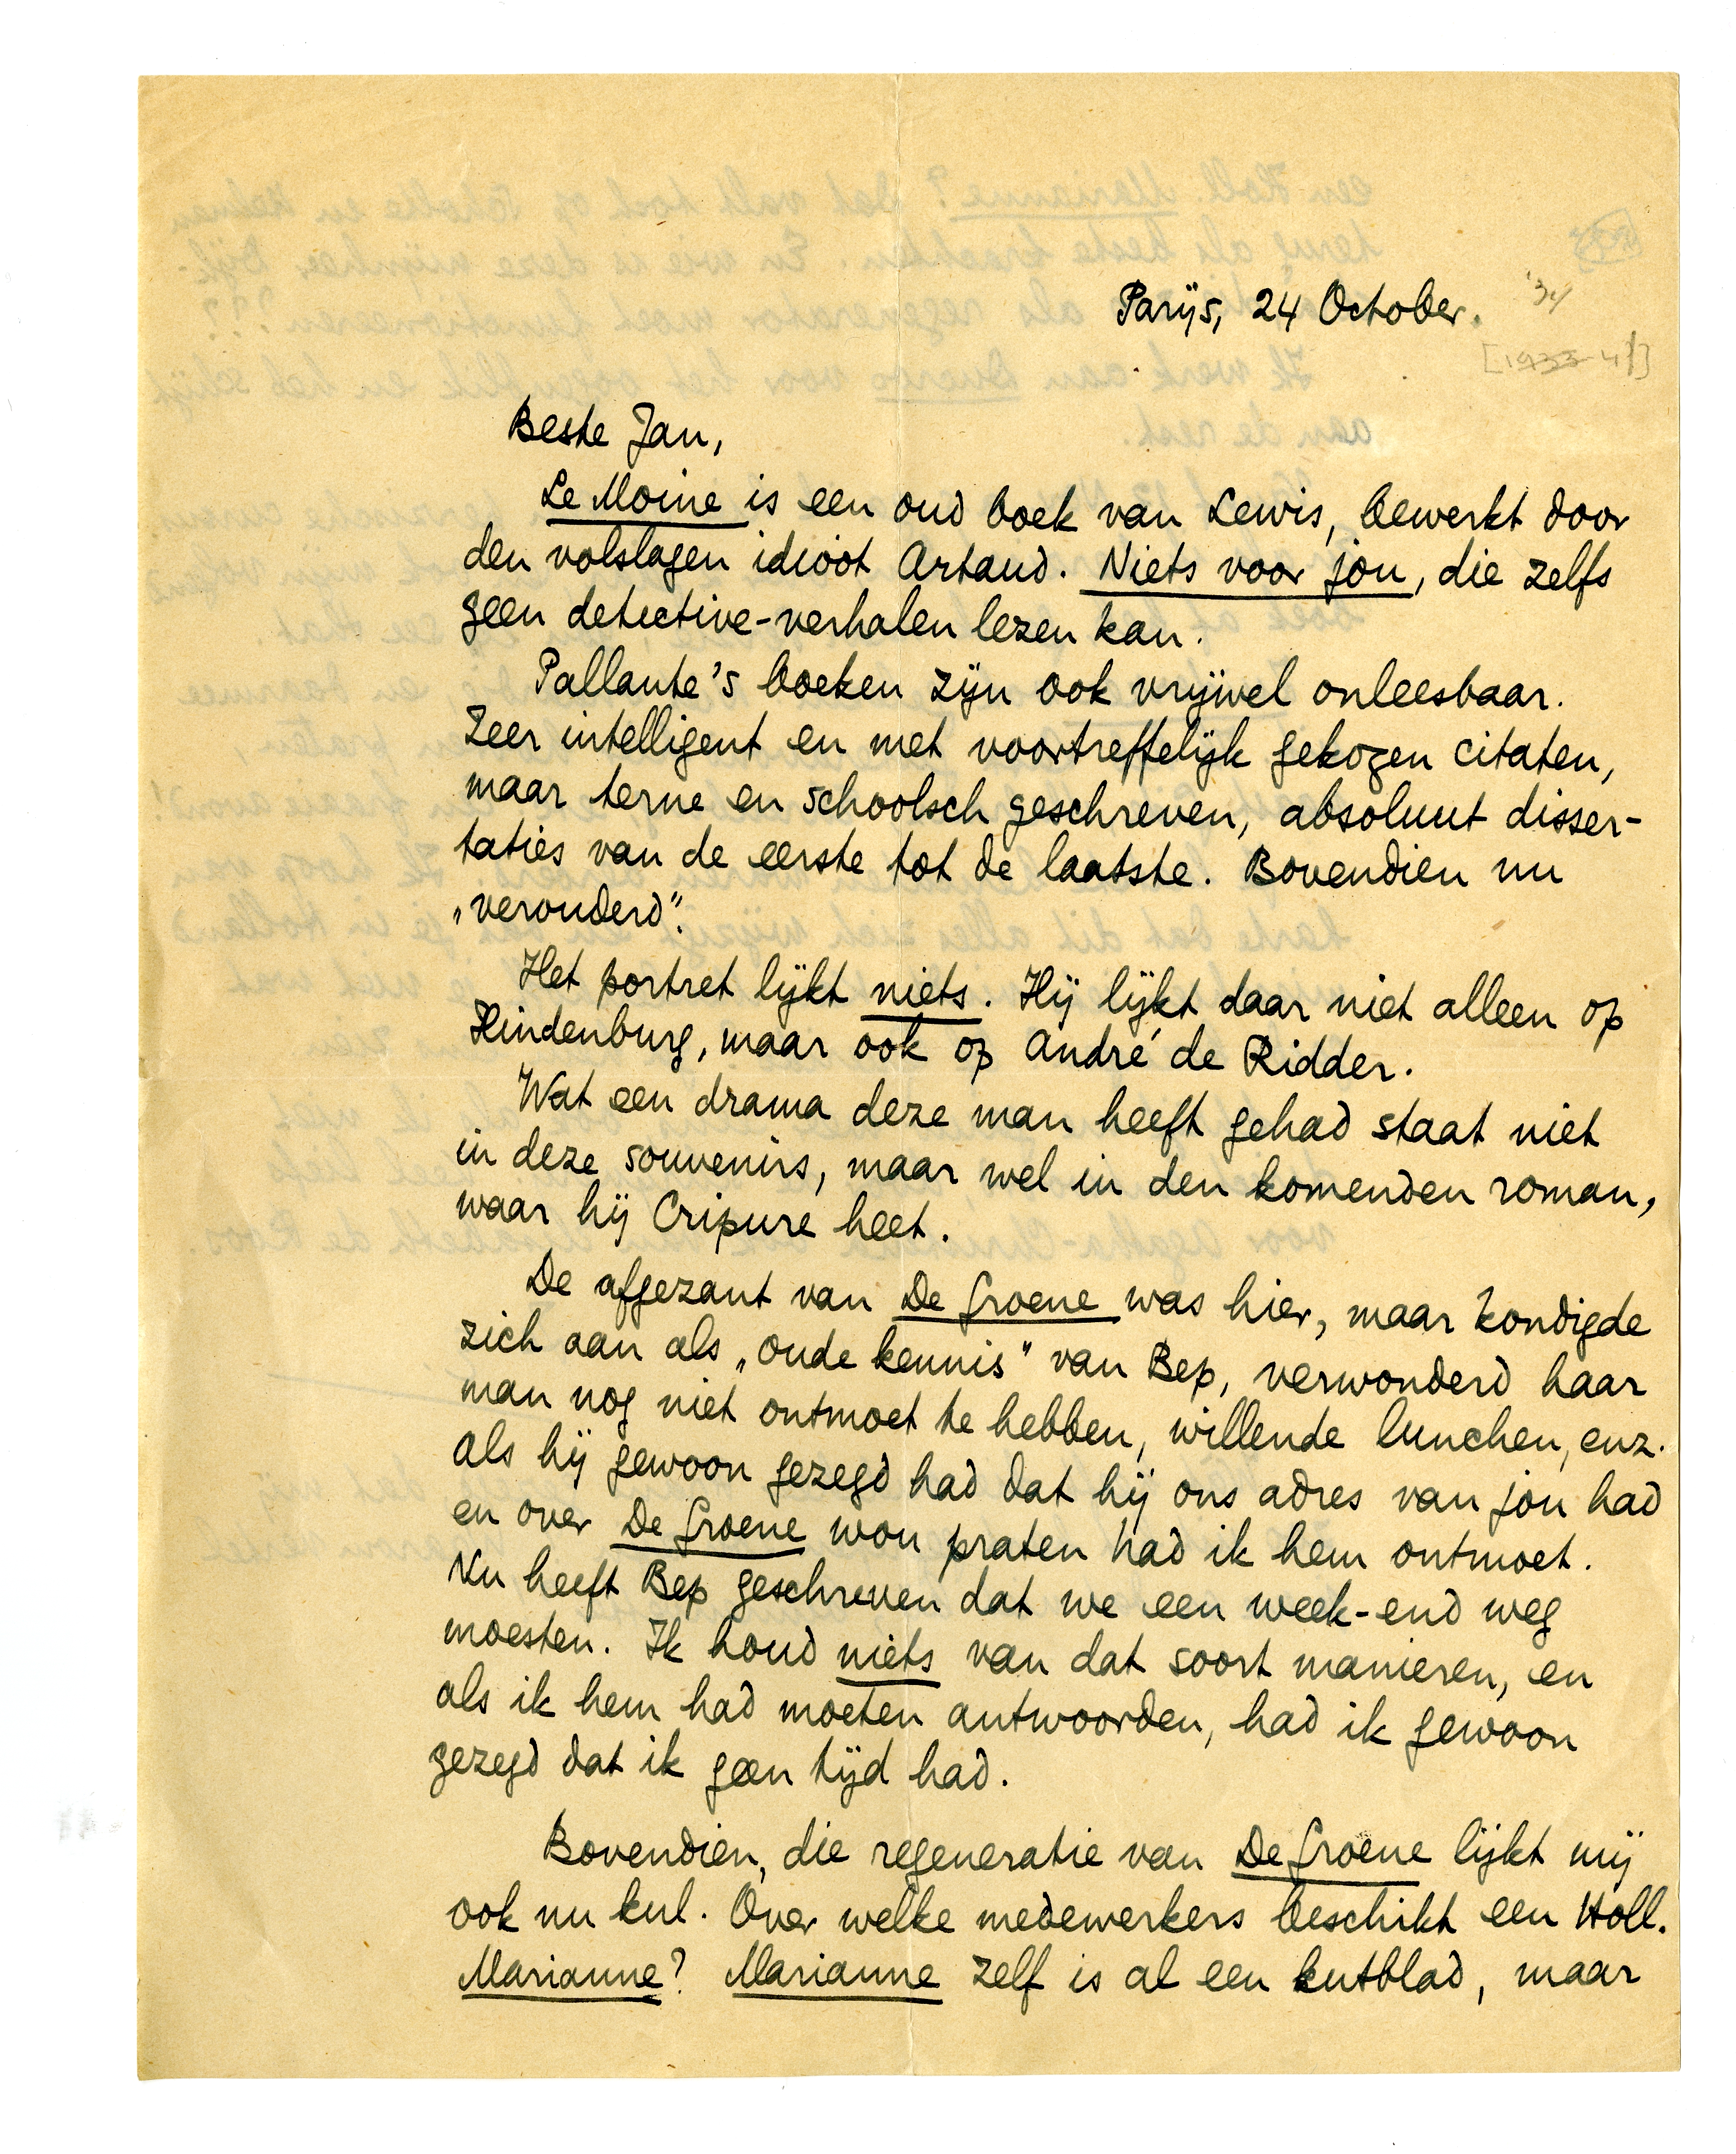 Parijs, 24 October. '34
[1933-4?]
Beste Jan,
Le Moine is een oud boek van Lewis, bewerkt door
den volslagen idioot Artaud. Niets voor jou, die zelfs
geen detective-verhalen lezen kan.
Pallante's boeken zijn ook vrijwel onleesbaar.
Zeer intelligent en met voortreffelijk gekozen citaten,
maar terne en schoolsch geschreven, absoluut disser-
taties van de eerste tot de laatste. Bovendien nu
„verouderd".
Het portret lijkt niets. Hij lijkt daar niet alleen op
Hindenburg, maar ook op André de Ridder.
Wat een drama deze man heeft gehad staat niet
in deze souvenirs, maar wel in den komenden roman,
waar hij Cripure heet.
De afgezant van De Groene was hier, maar kondigde
zich aan als „oude kennis" van Bep, verwonderd haar
man nog niet ontmoet te hebben, willende lunchen, enz.
Als hij gewoon gezegd had dat hij ons adres van jou had
en over De Groene wou praten had ik hem ontmoet.
Nu heeft Bep geschreven dat we een week-end weg
moesten. Ik houd niets van dat soort manieren, en
als ik hem had moeten antwoorden, had ik gewoon
gezegd dat ik geen tijd had.
Bovendien, die regeneratie van De Groene lijkt mij
ook nu kul. Over welke medewerkers beschikt een Holl.
Marianne? Marianne zelf is al een kutblad, maar